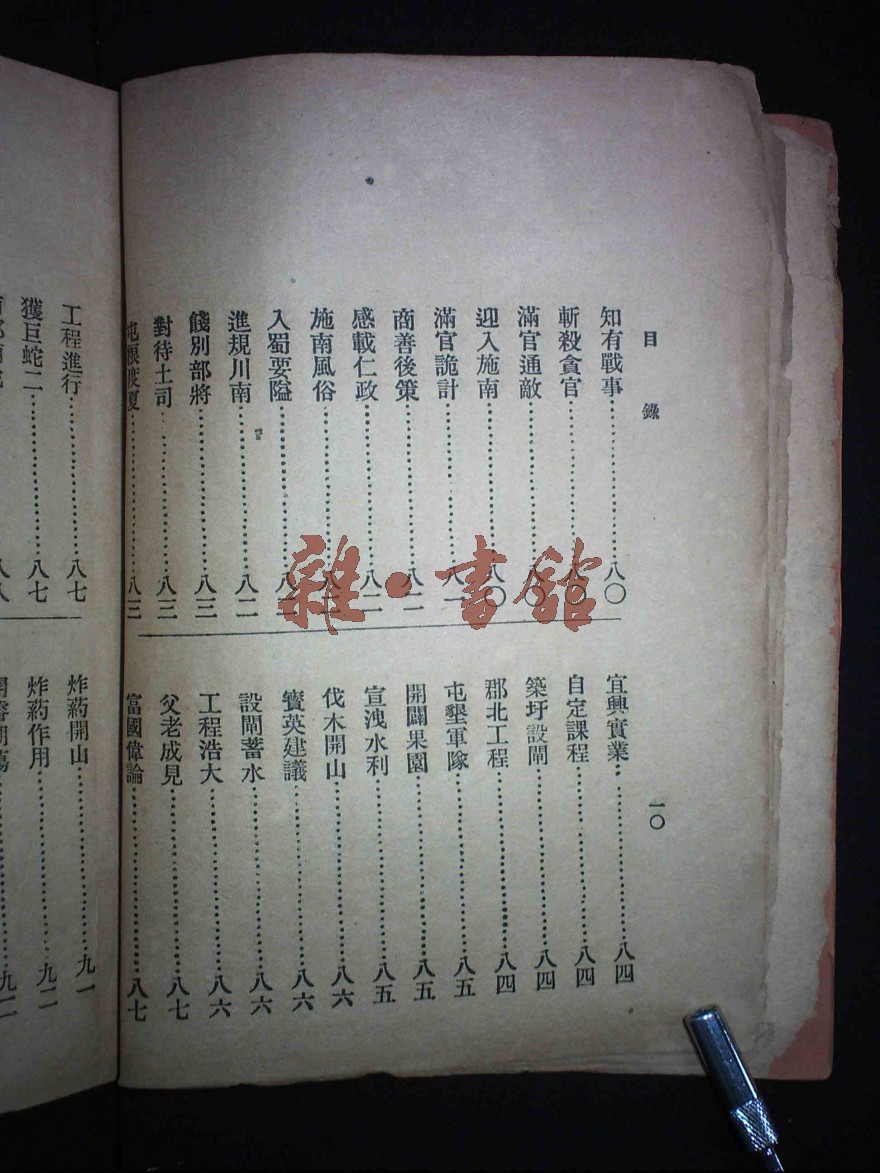 目錄
知有戰事⋯⋯八〇
斬殺貪官⋯⋯八〇
滿官通敵⋯⋯八〇
迎入施南⋯⋯八〇
滿官詭計⋯⋯八一
商善後策⋯⋯八二
感載仁政⋯⋯八二
施南風俗⋯⋯八二
入蜀要隘⋯⋯八二
進規川南⋯⋯八二
餞別部將⋯⋯八三
對待土司⋯⋯八三
度夏⋯⋯八三
一〇
宜興實業⋯⋯八四
自定課程⋯⋯八四
築圩設閘⋯⋯八四
郡北工程⋯⋯八四
屯墾軍隊⋯⋯八五
開闢果園⋯⋯八五
宣洩水利⋯⋯八五
伐木開山⋯⋯八六
寳英建議⋯⋯八六
設閘蓄水⋯⋯八六
工程浩大⋯⋯八六
父老成見⋯⋯八七
富國偉論⋯⋯八七
工程進行⋯⋯八七
獲巨蛇二⋯⋯八七
八八
炸葯開山⋯⋯九一
炸葯作用⋯⋯九二
雜·書館